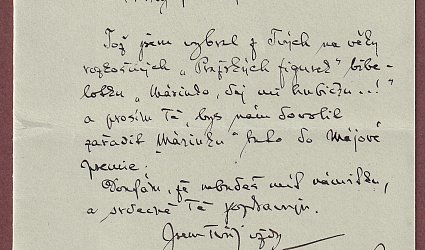 Tož jsem vybral z Tvých na věky
rozkošných „Pražských figurek" bibe-
lotku „Márinko, dej mi hubičku...!"
a prosím Tě, bys nám dovolil
zařadit „Márinku" tuto do Májové
premie.
Doufám, že nebudeš mít námitku,
a srdečně Tě pozdravuji.
Jsem Tvůj vždy